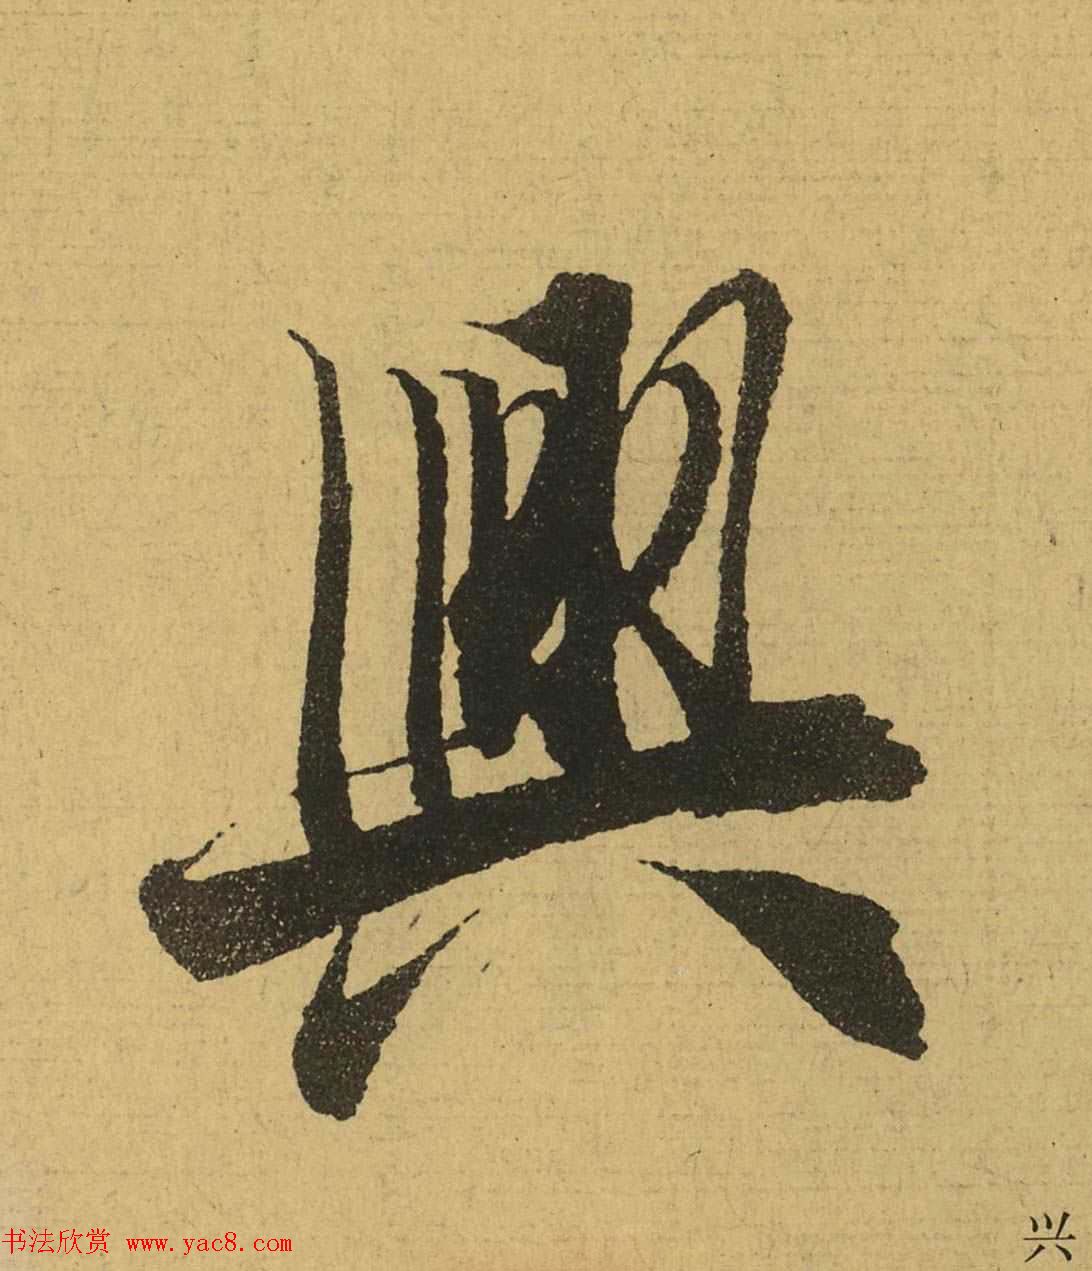 興
兴
书法欣赏 www.yac8.com